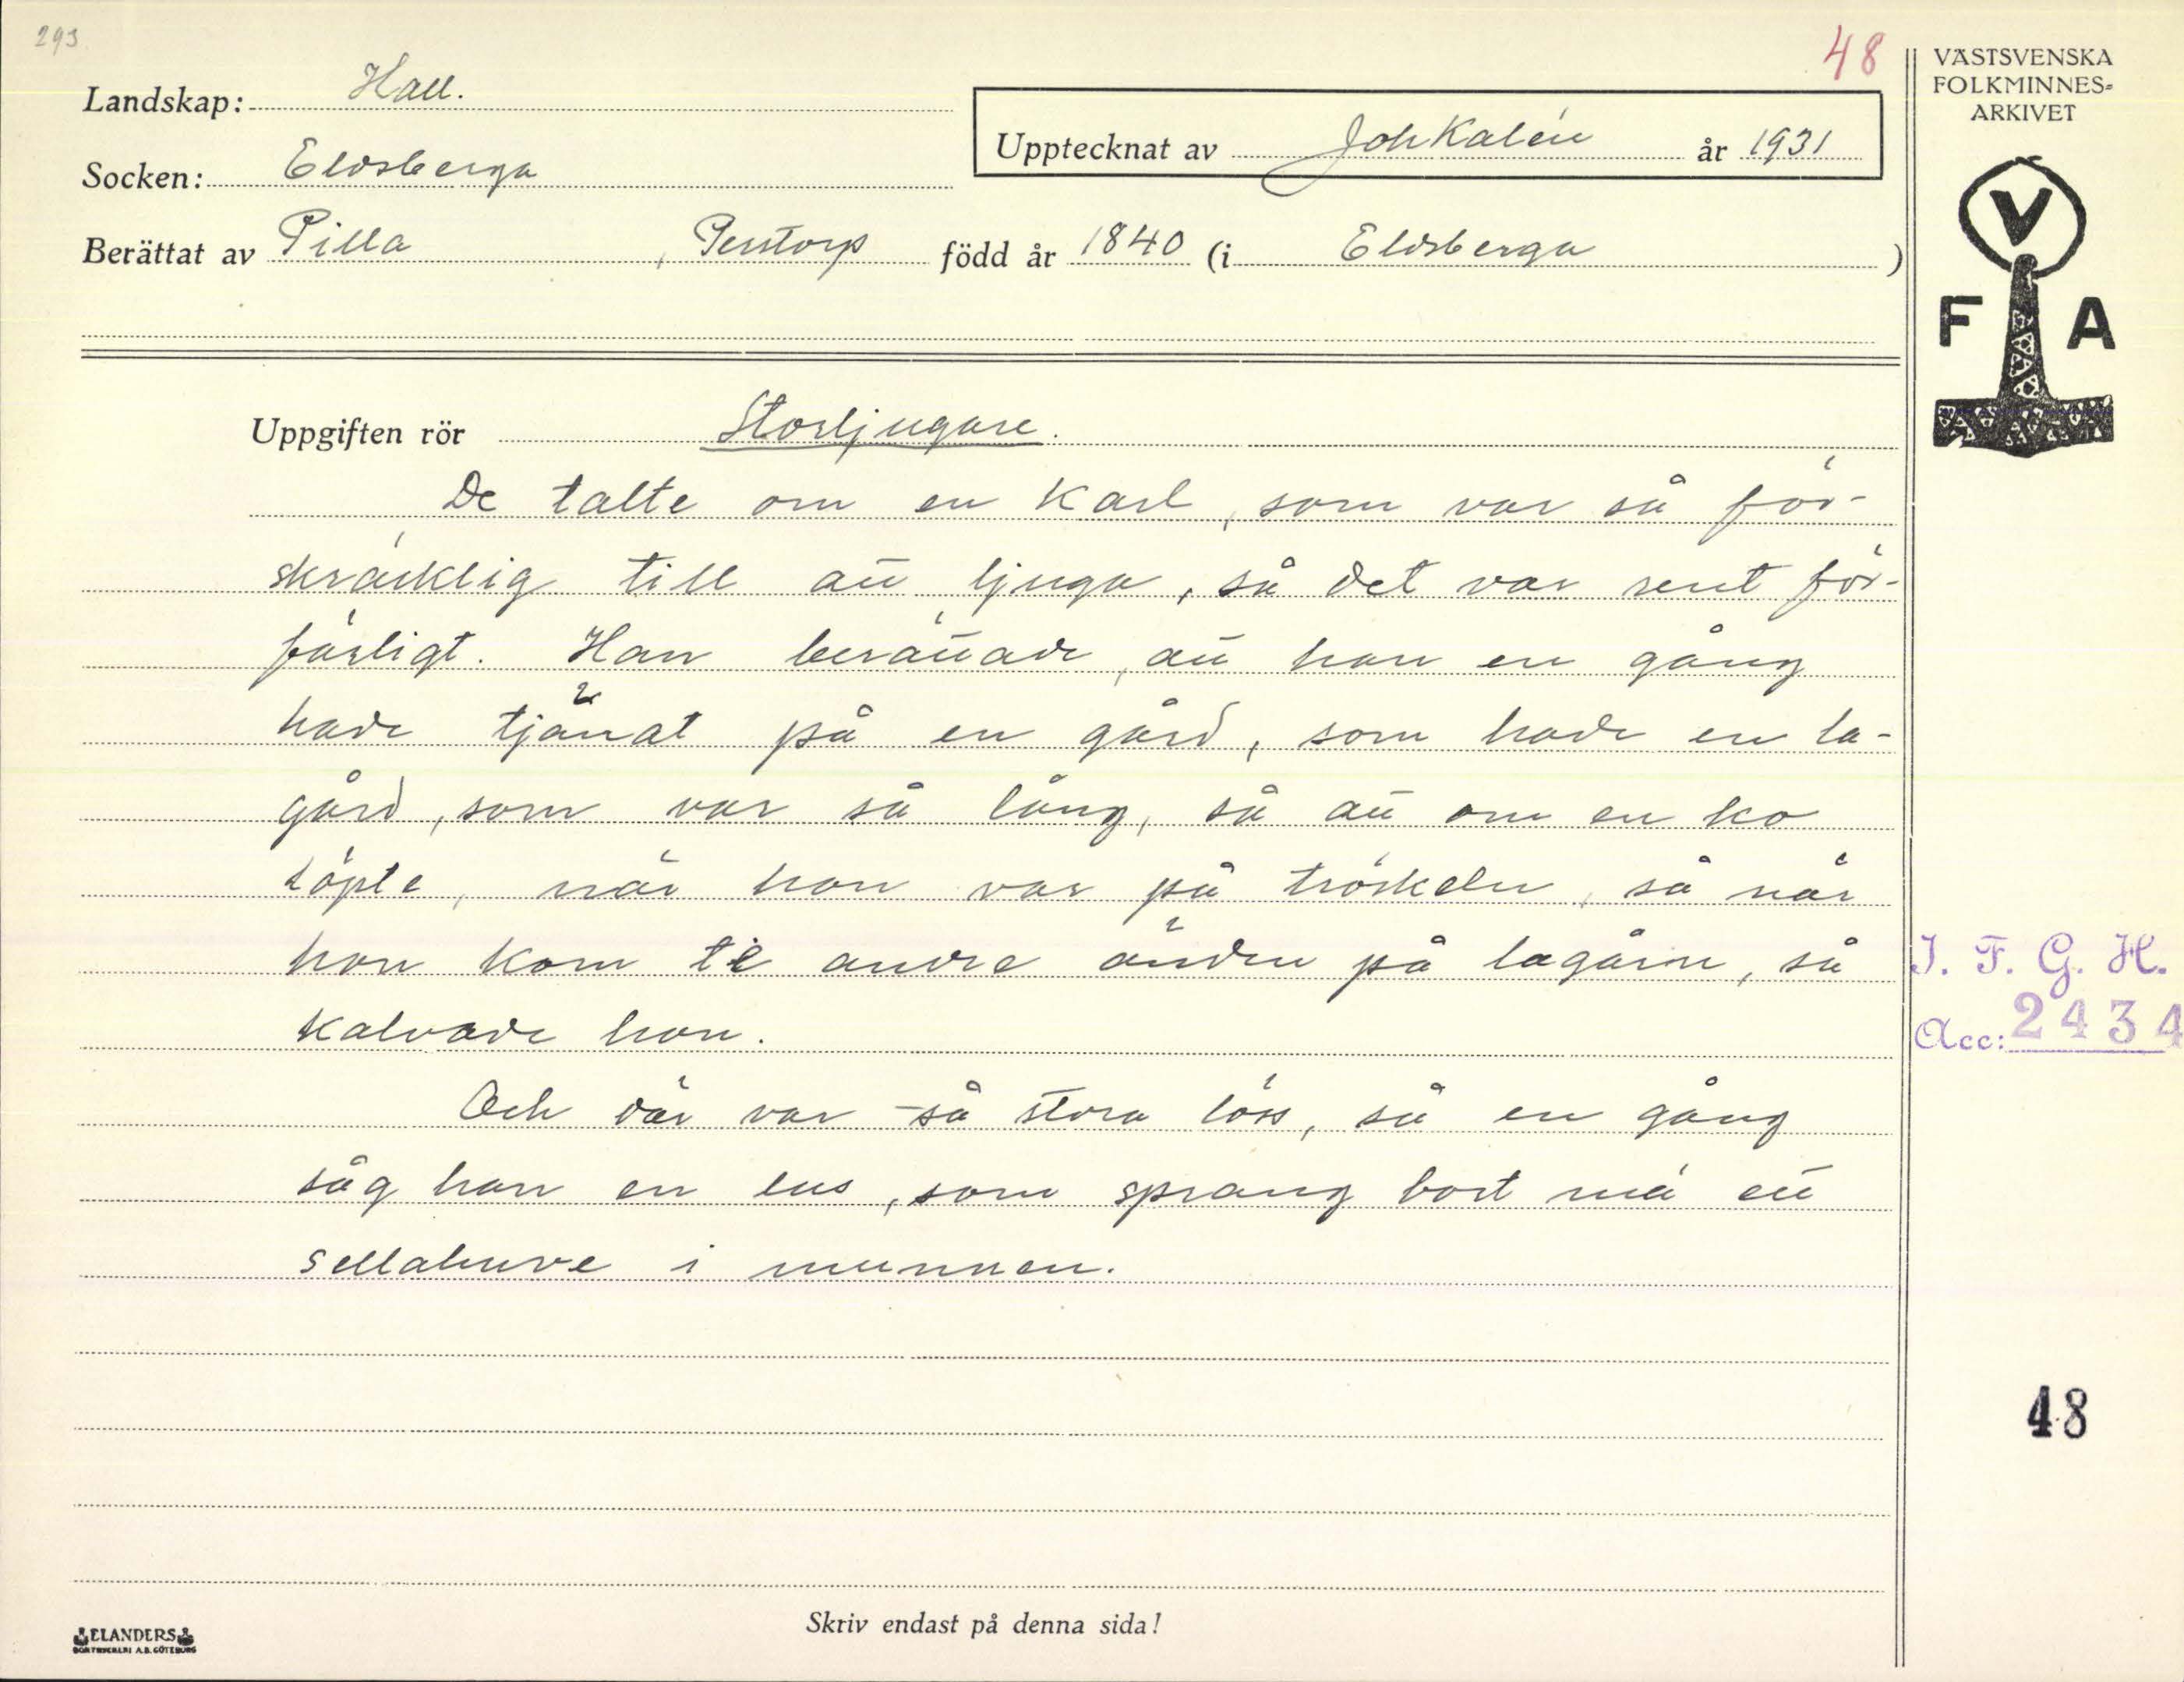 293
48
VÄSTSVENSKA
FOLKMINNES-
ARKIVET
Landskap: Hall.
Upptecknat av Joh Kalén år 1931
Socken: Eldsberga
Berättat av Pilla, Perstorp född år 1840 (i Eldsberga)
V
F A
Uppgiften rör Storljugare.
De talte om en karl, som var så för-
skräcklig till att ljuga, så det var rent för-
färligt. Han berättade, att han en gång
hade tjänat på en gård, som hade en la-
gård, som var så lång, så att om en ko
löpte, när hon var på tröskeln, så när
hon kom te andre änden på lagårn, så
kalvade hon.
Och där var så stora löss, så en gång
såg han en lus, som sprang bort mä ett
sellahuve i munnen.
I. F. G. H.
Acc: 2434
48
ELANDERS
BOKTRYCKERI A.B. GÖTEBORG
Skriv endast på denna sida!